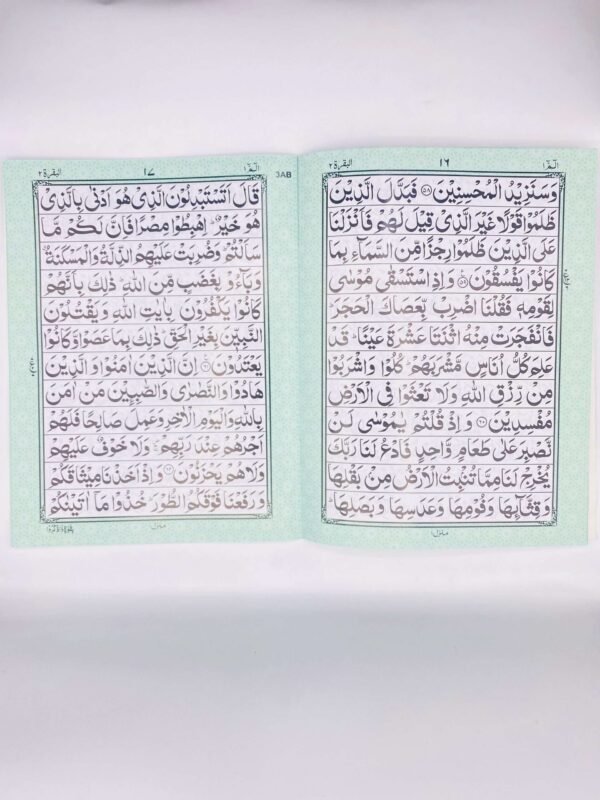 البقرة ٢
١٦
الٓمّٓ ١
وَسَنَزِيْدُ الْمُحْسِنِيْنَ ۝٥٨ فَبَدَّلَ الَّذِيْنَ
ظَلَمُوْا قَوْلًا غَيْرَ الَّذِيْ قِيْلَ لَهُمْ فَاَنْزَلْنَا
عَلَى الَّذِيْنَ ظَلَمُوْا رِجْزًا مِّنَ السَّمَآءِ بِمَا
كَانُوْا يَفْسُقُوْنَ ۝٥٩ وَاِذِ اسْتَسْقٰى مُوْسٰى
لِقَوْمِهٖ فَقُلْنَا اضْرِبْ بِّعَصَاكَ الْحَجَرَ
فَانْفَجَرَتْ مِنْهُ اثْنَتَا عَشْرَةَ عَيْنًا قَدْ
عَلِمَ كُلُّ اُنَاسٍ مَّشْرَبَهُمْ كُلُوْا وَاشْرَبُوْا
مِنْ رِّزْقِ اللّٰهِ وَلَا تَعْثَوْا فِى الْاَرْضِ
مُفْسِدِيْنَ ۝٦٠ وَاِذْ قُلْتُمْ يٰمُوْسٰى لَنْ
نَّصْبِرَ عَلٰى طَعَامٍ وَّاحِدٍ فَادْعُ لَنَا رَبَّكَ
يُخْرِجْ لَنَا مِمَّا تُنْۢبِتُ الْاَرْضُ مِنْۢ بَقْلِهَا
وَقِثَّآئِهَا وَفُوْمِهَا وَعَدَسِهَا وَبَصَلِهَا
منزل ١
البقرة ٢
١٧
الٓمّٓ ١
3AB
قَالَ اَتَسْتَبْدِلُوْنَ الَّذِيْ هُوَ اَدْنٰى بِالَّذِيْ
هُوَ خَيْرٌ اِهْبِطُوْا مِصْرًا فَاِنَّ لَكُمْ مَّا
سَاَلْتُمْ وَضُرِبَتْ عَلَيْهِمُ الذِّلَّةُ وَالْمَسْكَنَةُ
وَبَآءُوْ بِغَضَبٍ مِّنَ اللّٰهِ ذٰلِكَ بِاَنَّهُمْ
كَانُوْا يَكْفُرُوْنَ بِاٰيٰتِ اللّٰهِ وَيَقْتُلُوْنَ
النَّبِيّٖنَ بِغَيْرِ الْحَقِّ ذٰلِكَ بِمَا عَصَوْا وَّكَانُوْا
يَعْتَدُوْنَ ۝٦١ اِنَّ الَّذِيْنَ اٰمَنُوْا وَالَّذِيْنَ
هَادُوْا وَالنَّصٰرٰى وَالصّٰبِـِٕيْنَ مَنْ اٰمَنَ
بِاللّٰهِ وَالْيَوْمِ الْاٰخِرِ وَعَمِلَ صَالِحًا فَلَهُمْ
اَجْرُهُمْ عِنْدَ رَبِّهِمْ وَلَا خَوْفٌ عَلَيْهِمْ
وَلَا هُمْ يَحْزَنُوْنَ ۝٦٢ وَاِذْ اَخَذْنَا مِيْثَاقَكُمْ
وَرَفَعْنَا فَوْقَكُمُ الطُّوْرَ خُذُوْا مَآ اٰتَيْنٰكُمْ
منزل ١